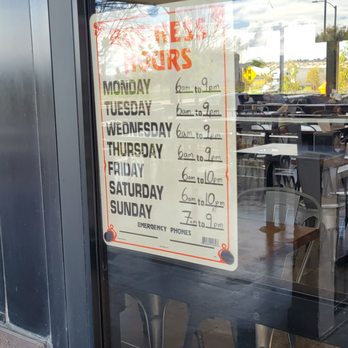 BUSINESS
HOURS
MONDAY 6am to 9pm
TUESDAY 6am to 9pm
WEDNESDAY 6am to 9pm
THURSDAY 6am to 9pm
FRIDAY 6am to 10pm
SATURDAY 6am to 10pm
SUNDAY 7am to 9pm
EMERGENCY PHONES